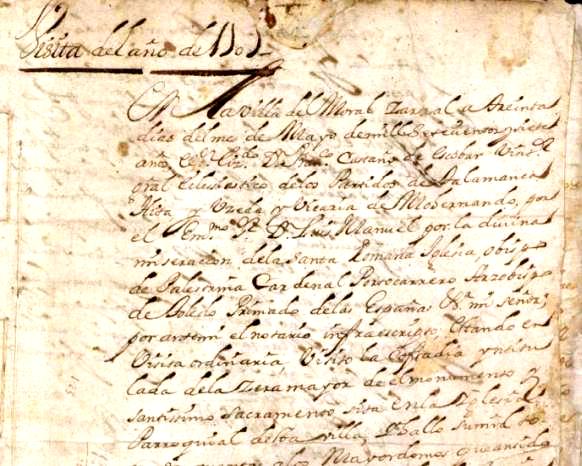 Visita del año de
En La villa del Moral Zarzal a treinta
dias del mes de Mayo de mill Setecientos y siete
años el Sr. Lizdo. Dn. Castaño de Escobar Visitr.
oral Eclesiastico de los Partidos de Talamanca
Hita y Uzeda y Vicaria de Mohernando, por
el Emmo. Sr. D. Luis Manuel por la divina
miseracion de la Santa Romana Iglesia, obispo
de Palestrina Cardenal Portocarrero Arzobispo
de Toledo Primado de las Españas &a. mi señor,
por ante mi el notario infraescripto, Estando en
Visita ordinaria Visito la Cofradia yntitu
lada de la Zera mayor de el monumento y
santissimo Sacramento sita en la Iglesia
Parroquial desta villa, Y hallo
Mayordomos